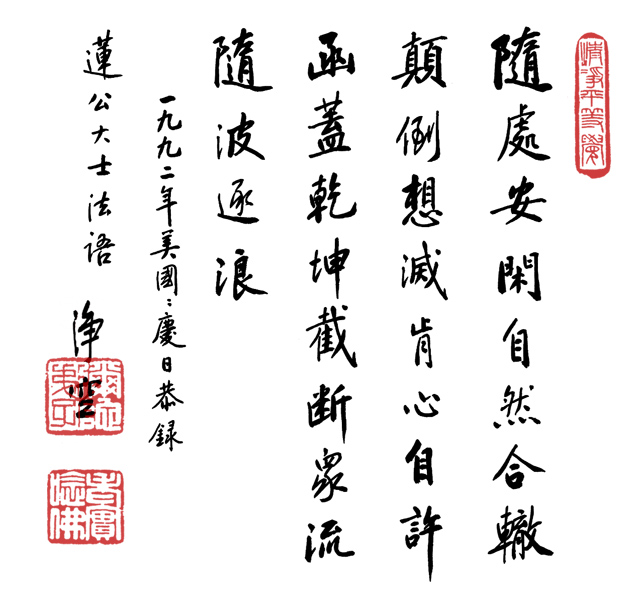 清淨平等覺
隨處安閑自然合轍
顛倒想滅肯心自許
函蓋乾坤截斷眾流
隨波逐浪
一九九二年美國國慶日恭録
蓮公大士法語
淨空
老實念佛